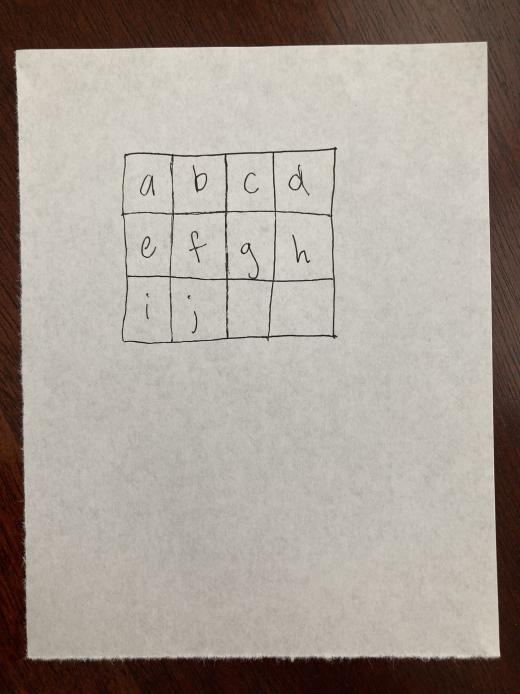 a b c d
e f g h
i j